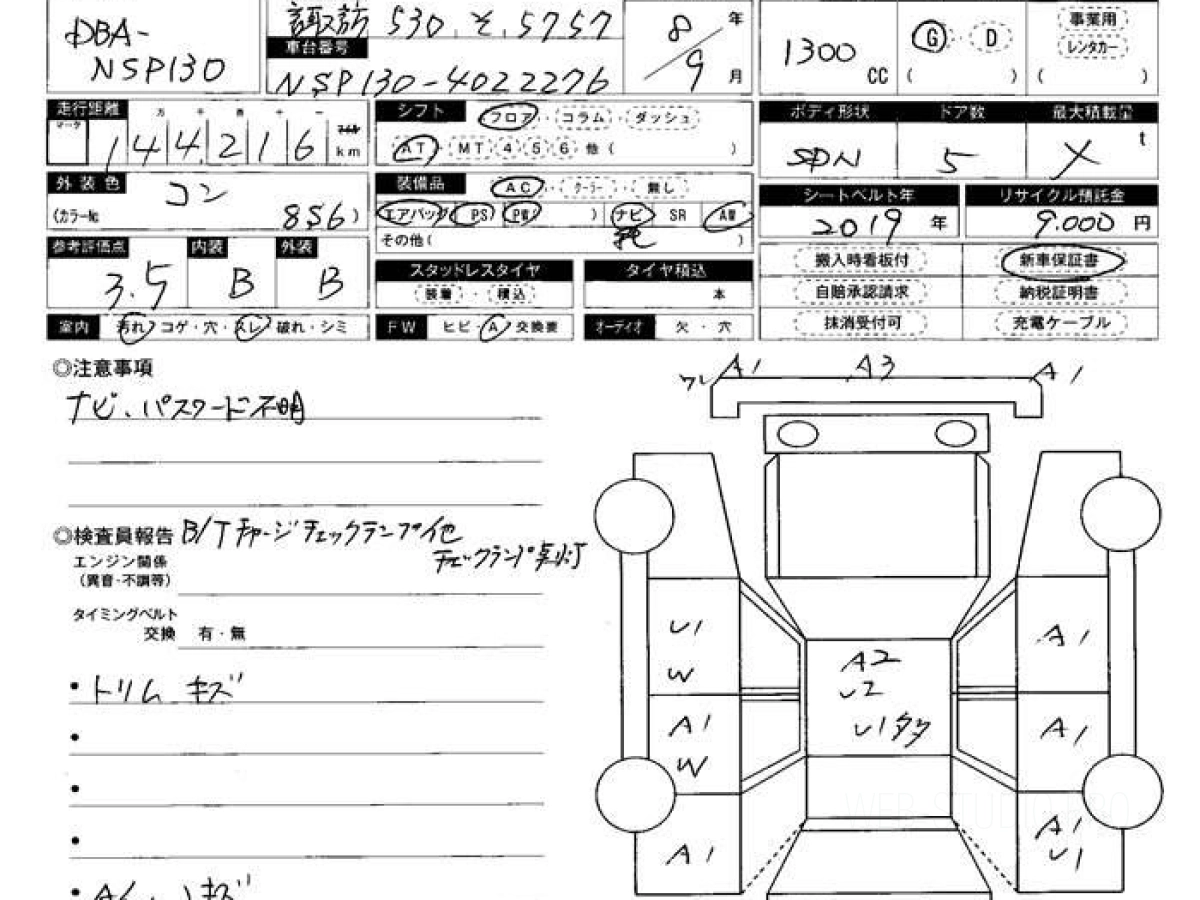 DBA-
NSP130
諏訪 530 そ 5757
車台番号
NSP130-4022276
8年
9月
1300 CC
G・D
( )
事業用
レンタカー
( )
走行距離
マーク
万 千 百 十 一
144,216
km
シフト
フロア・コラム・ダッシュ
AT・MT(4・5・6 他( )
ボディ形状 ドア数 最大積載量
SDN 5 t
外装色 コン
(カラー№ 856)
装備品 AC・クーラー・無し
エアバッグ PS PW ) ナビ SR AW
その他( )
シートベルト年
2019年
リサイクル預託金
9,000円
参考評価点 内装 外装
3.5 B B
スタッドレスタイヤ
装着・積込
タイヤ積込
本
搬入時看板付 新車保証書
自賠承認請求 納税証明書
抹消受付可 充電ケーブル
室内 汚れ・コゲ・穴・スレ・破れ・シミ
FW ヒビ・A・交換要
オーディオ 欠・穴
◎注意事項
ナビ、パスワード不明
ワレ A1 A3 A1
◎検査員報告 B/Tチャージチェックランプ他
チェックランプ点灯
エンジン関係
(異音・不調等)
タイミングベルト
交換 有・無
・トリム キズ
U1
W
A1
W
A1
A2
U2
U1多々
A1
A1
A1
U1